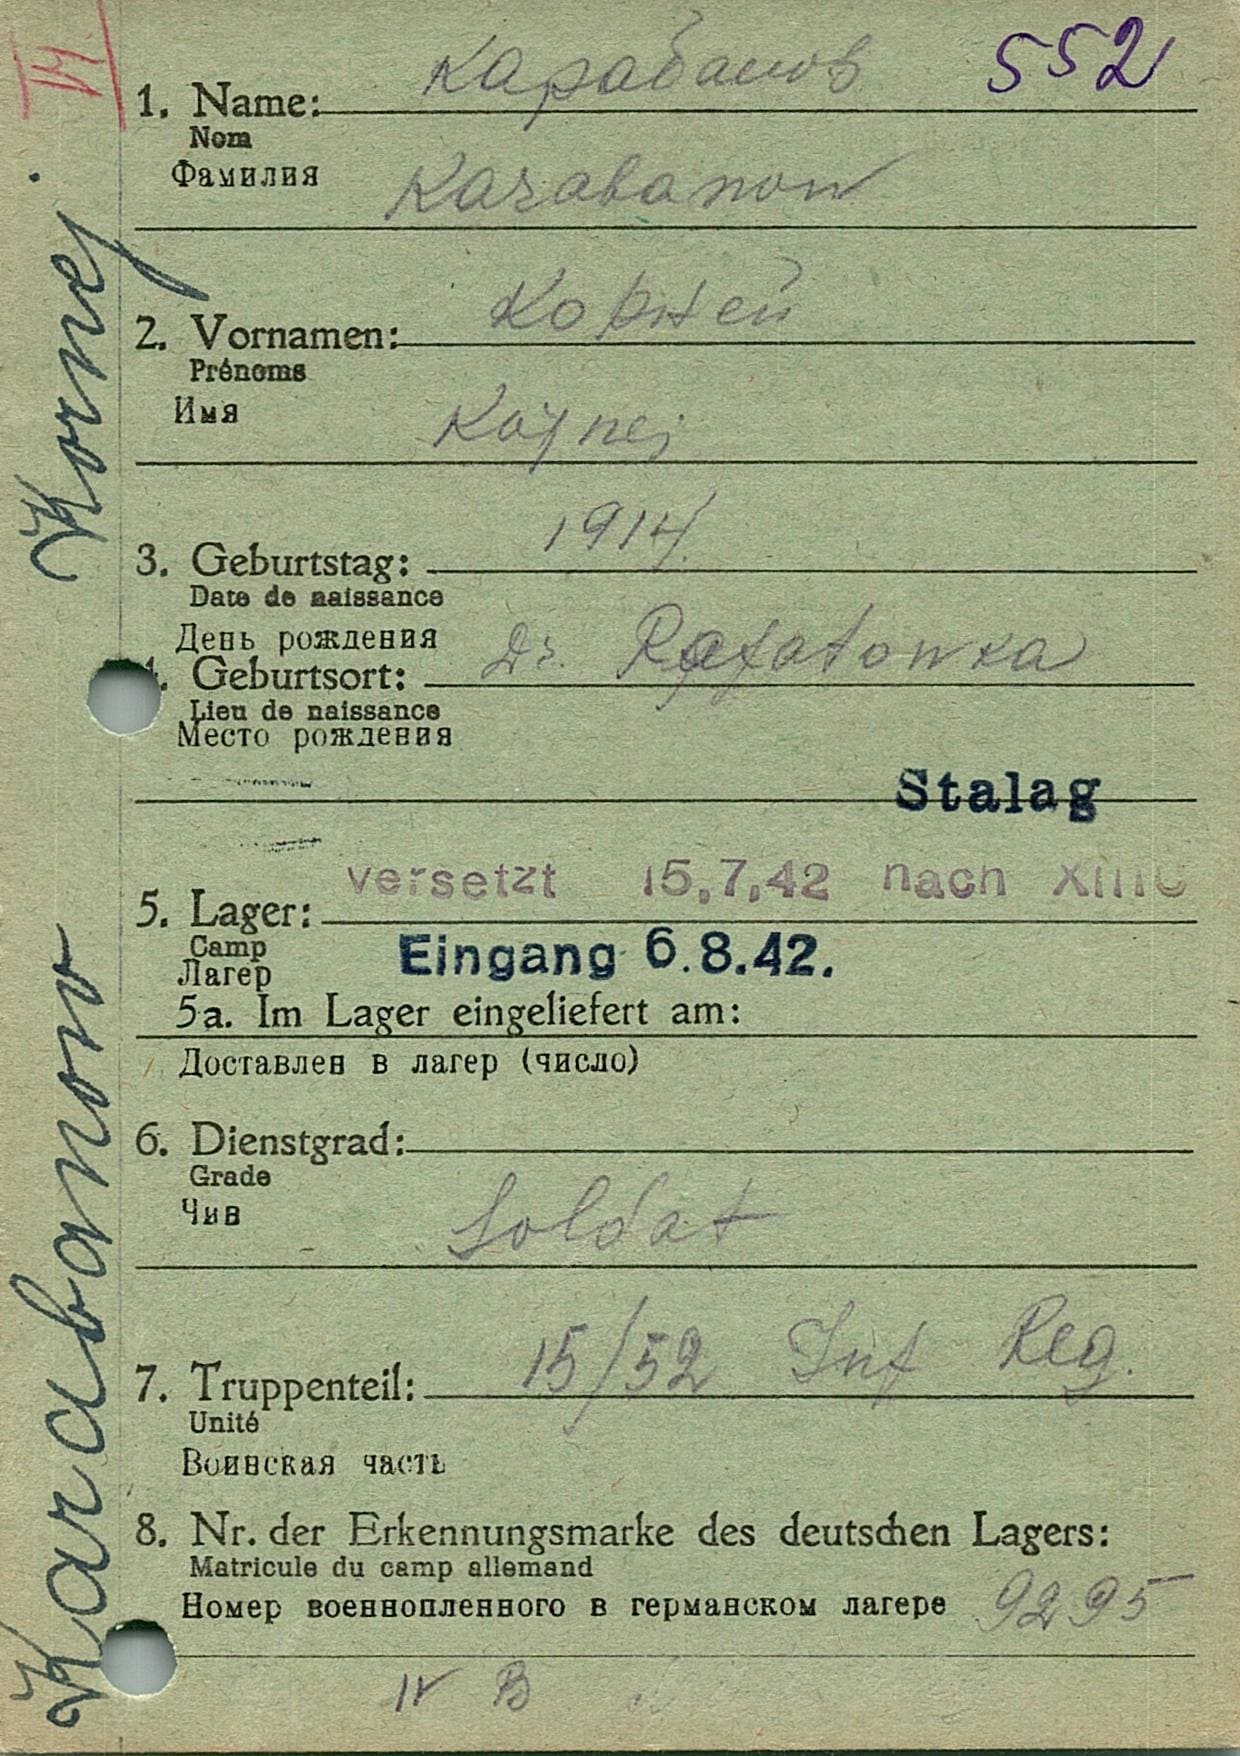 VI
552
Карабанов
1. Name:
Nom
Фамилия
Karabanow
Корней
2. Vornamen:
Prénoms
Имя
Kornej
1914
3. Geburtstag:
Date de naissance
День рождения
Dr. Rafatowka
4. Geburtsort:
Lieu de naissance
Место рождения
Stalag
versetzt 15.7.42 nach XIII C
5. Lager:
Camp
Eingang 6.8.42.
Лагер
5a. Im Lager eingeliefert am:
Доставлен в лагер (число)
6. Dienstgrad:
Grade
Чин
Soldat
15/52 Inf Reg.
7. Truppenteil:
Unité
Воинская часть
8. Nr. der Erkennungsmarke des deutschen Lagers:
Matricule du camp allemand
Номер военнопленного в германском лагере 9295
IV B
Karabanow Kornej